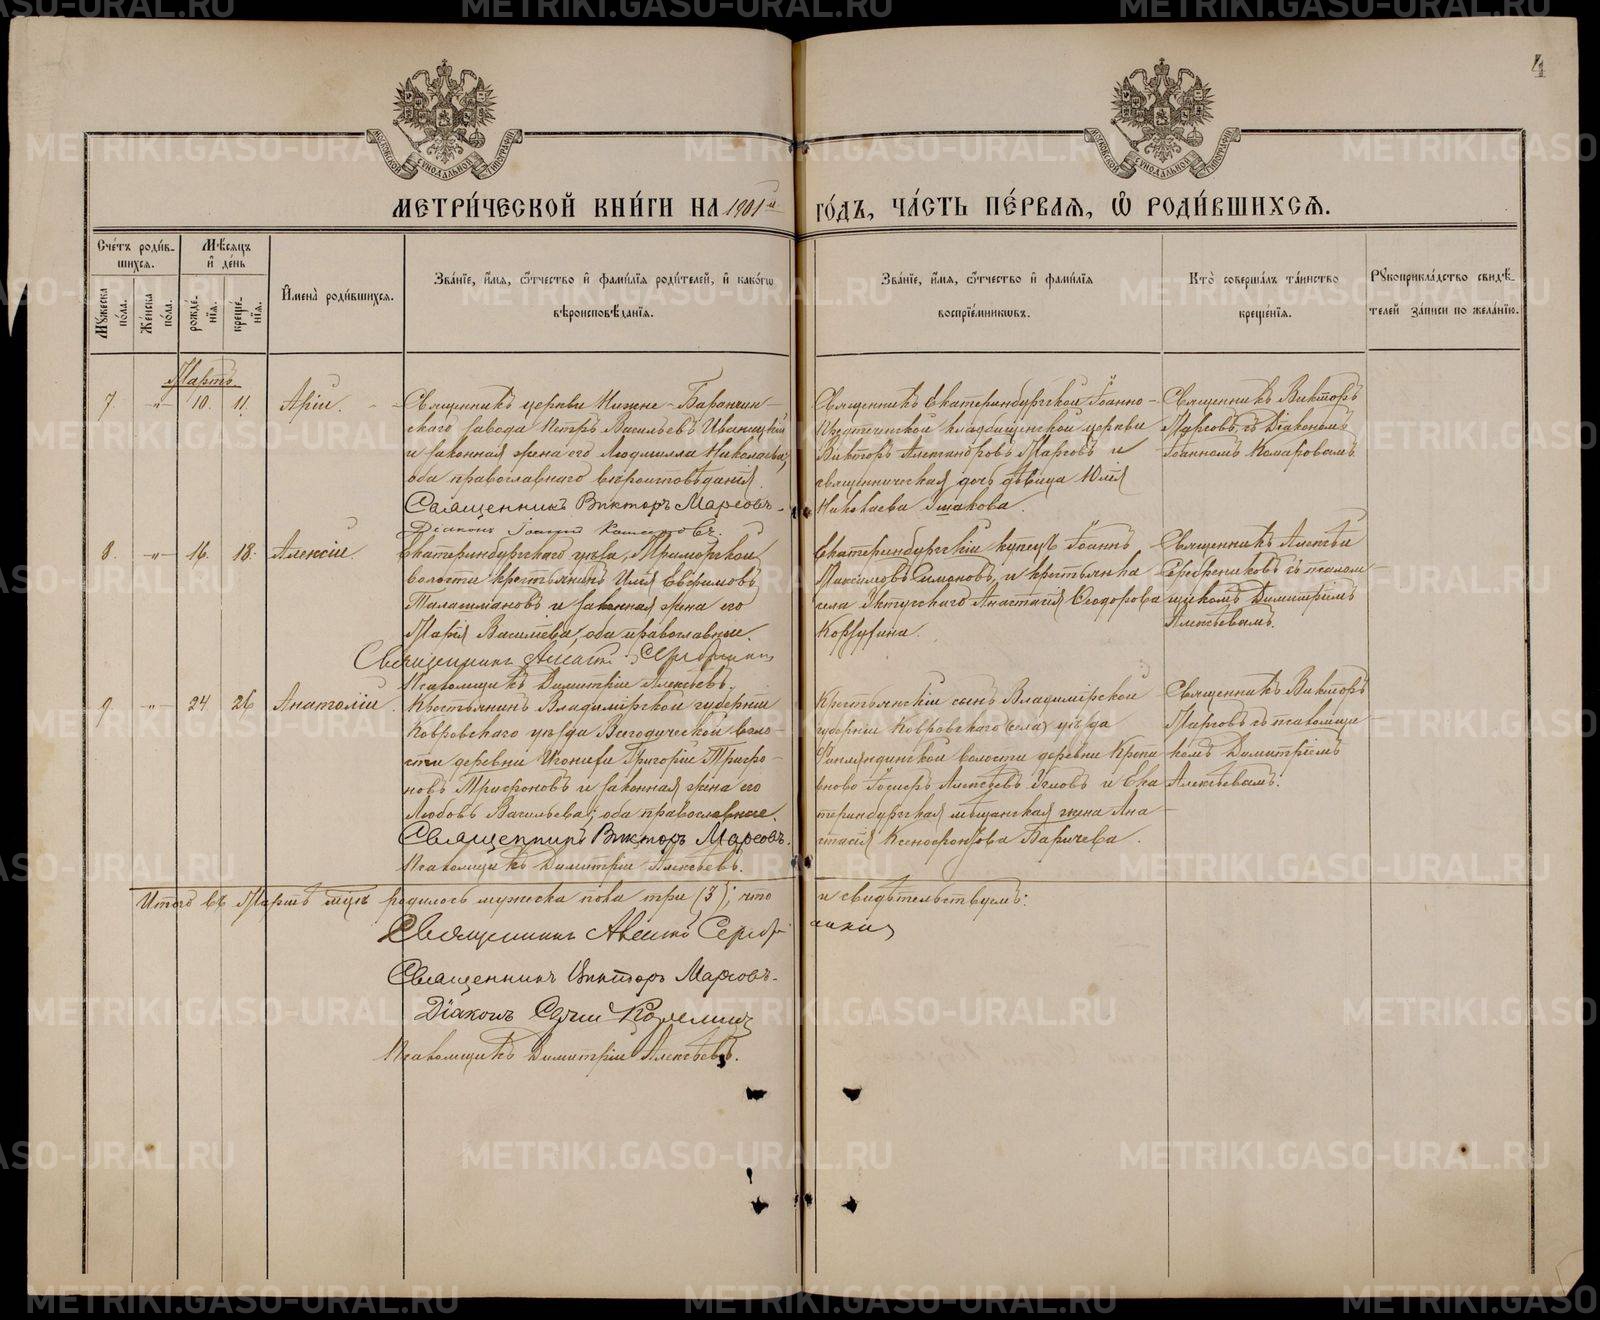 4
МОСКОВСКОЙ СѴНОДАЛЬНОЙ ТИПОГРАФІИ
МОСКОВСКОЙ СѴНОДАЛЬНОЙ ТИПОГРАФІИ
МЕТРИ́ЧЕСКОЙ КНИ́ГИ НА 1901й
ГО́ДЪ, ЧА́СТЬ ПЕ́РВАЯ, Ѡ РОДИ́ВШИХСЯ.
Сче́тъ роди́в-
шихся.
Му́жеска по́ла.
Же́нска по́ла.
Мѣ́сяцъ и де́нь
рожде́-
нія.
креще́-
нія.
Имена̀ роди́вшихся.
Зва́ніе, и́мя, ѻ́тчество и фами́лія роди́телей, и како́гѡ
вѣроисповѣ́данія.
Зва́ніе, и́мя, ѻ́тчество и фами́лія
воспріе́мниковъ.
Кто̀ соверша́лъ та́инство
креще́нія.
Рꙋкоприкла́дство свидѣ́-
телей за́писи по жела́нію.
Мартъ
7. -"- 10. 11. Арій.
Священникъ церкви Нижне-Баранчин-
скаго завода Петръ Васильевъ Иваницкій
и законная жена его Людмилла Николаева,
оба православнаго вѣроисповѣданія.
Священникъ Викторъ Марсовъ.
Діаконъ Іоаннъ Комаровъ.
Священникъ Екатеринбургской Іоанно-
Предтеченской кладбищенской церкви
Викторъ Александровъ Марсовъ и
священническая дочь дѣвица Юлія
Николаева Ушакова.
Священникъ Викторъ
Марсовъ съ Діакономъ
Іоанномъ Комаровымъ
8. -"- 16. 18. Алексій.
Екатеринбургскаго уѣзда,
волости крестьянинъ Илія Евфимовъ
Талашмановъ и законная жена его
Марія Васильева, оба православные.
Священникъ
Псаломщикъ Димитрій Алексѣевъ.
Екатеринбургскій купецъ Іоаннъ
Максимовъ Симановъ, и крестьянка
села Уктусскаго Анастасія Ѳеодорова
Корзухина.
Священникъ Алексѣй
Серебренниковъ съ псалом-
щикомъ Димитріемъ
Алексѣевымъ.
9. -"- 24 26 Анатолій.
Крестьянинъ Владимірской губерніи
Ковровскаго уѣзда воло-
сти деревни Григорій Трифо-
новъ Трифоновъ и законная жена его
Любовь Васильева; оба православные.
Священникъ Викторъ Марсовъ.
Псаломщикъ Димитрій Алексѣевъ.
Крестьянскій сынъ Владимірской
губерніи Ковровскаго (села) уѣзда
волости деревни
Алексѣевъ и Ека-
теринбургская мѣщанская жена Ана-
стасія Ксенофонтова
Священникъ Викторъ
Марсовъ съ псаломщи-
комъ Димитріемъ
Алексѣевымъ.
Итого въ Мартѣ мѣсяцѣ родилось мужеска пола три (3); что
и свидѣтельствуемъ:
Священникъ
Священникъ Викторъ Марсовъ.
Діаконъ
Псаломщикъ Димитрій Алексѣевъ.
METRIKI.GASO-URAL.RU